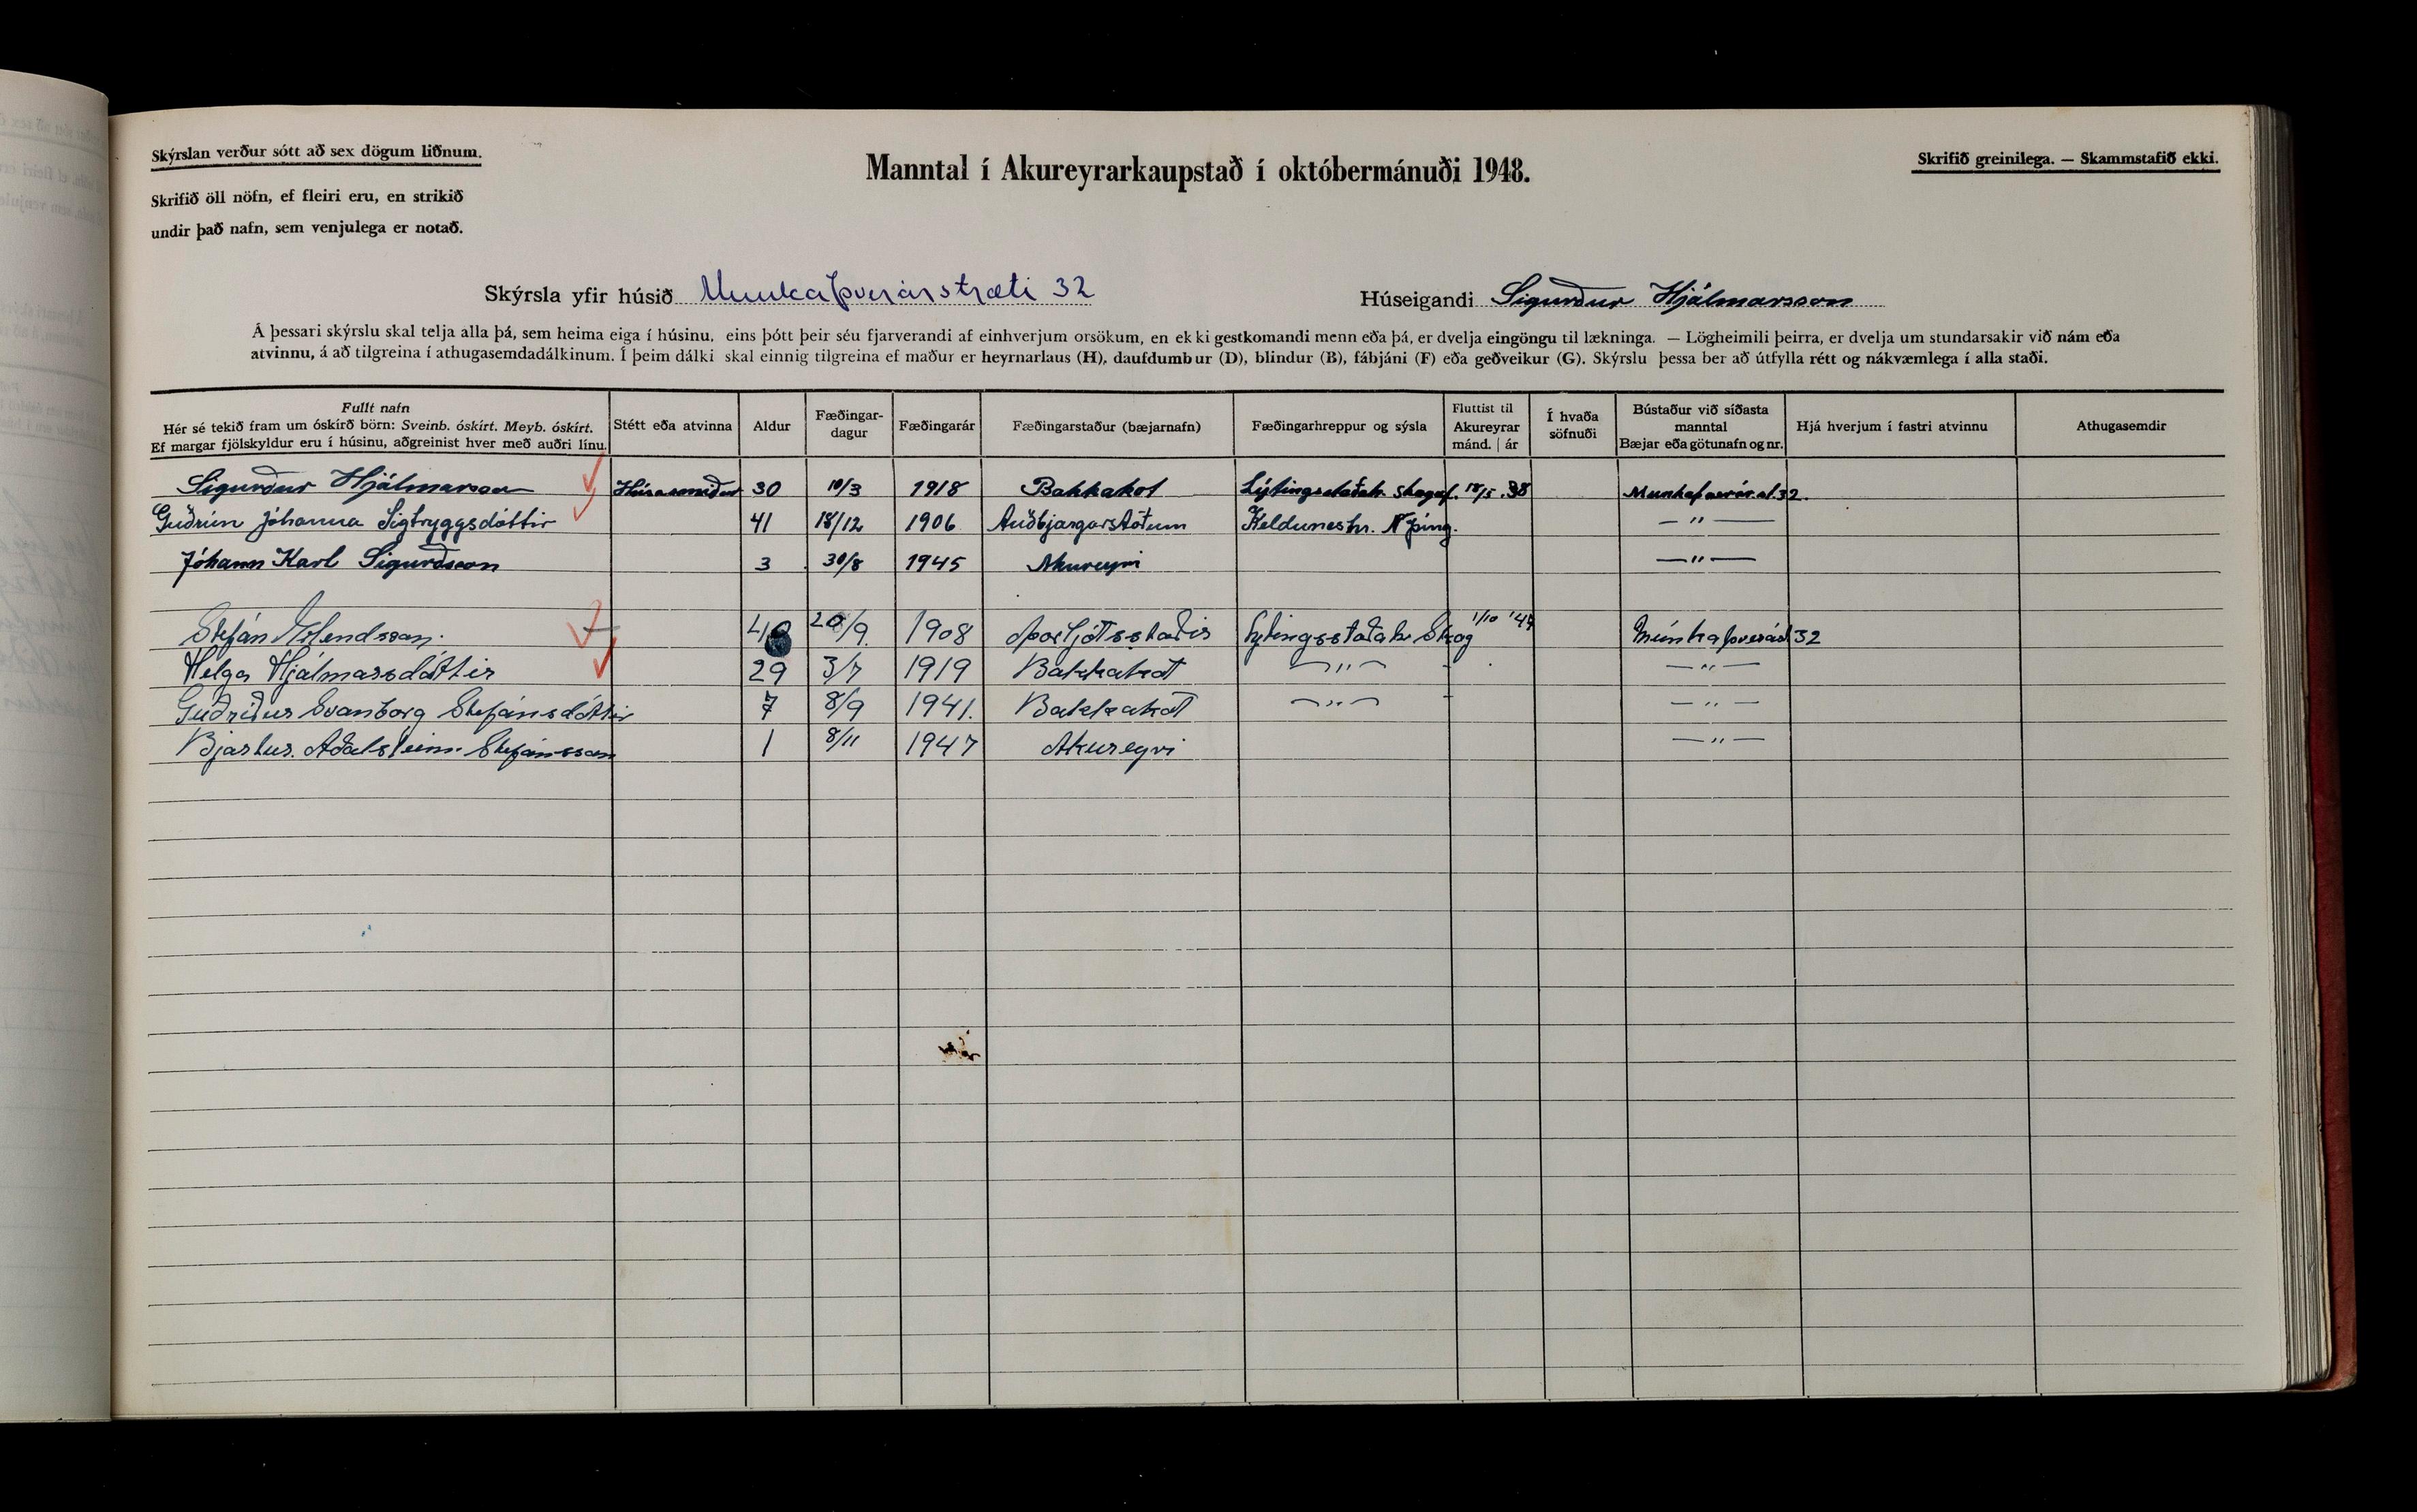 Skýrslan verður sótt að sex dögum liðnum.
Skrifið öll nöfn, ef fleiri eru, en strikið
undir það nafn, sem venjulega er notað.
Manntal í Akureyrarkaupstað í októbermánuði 1948.
Skrifið greinilega. — Skammstafið ekki.
Skýrsla yfir húsið Munkaþverárstræti 32
Húseigandi Sigurður Hjálmarsson
Á þessari skýrslu skal telja alla þá, sem heima eiga í húsinu, eins þótt þeir séu fjarverandi af einhverjum orsökum, en ekki gestkomandi menn eða þá, er dvelja eingöngu til lækninga. — Lögheimili þeirra, er dvelja um stundarsakir við nám eða
atvinnu, á að tilgreina í athugasemdadálkinum. Í þeim dálki skal einnig tilgreina ef maður er heyrnarlaus (H), daufdumbur (D), blindur (B), fábjáni (F) eða geðveikur (G). Skýrslu þessa ber að útfylla rétt og nákvæmlega í alla staði.
Fullt nafn
Hér sé tekið fram um óskírð börn: Sveinb. óskírt. Meyb. óskírt.
Ef margar fjölskyldur eru í húsinu, aðgreinist hver með auðri línu.
Stétt eða atvinna
Aldur
Fæðingar-
dagur
Fæðingarár
Fæðingarstaður (bæjarnafn)
Fæðingarhreppur og sýsla
Fluttist til
Akureyrar
mánd. | ár
Í hvaða
söfnuði
Bústaður við síðasta
manntal
Bæjar eða götunafn og nr.
Hjá hverjum í fastri atvinnu
Athugasemdir
Sigurður Hjálmarsson Húsasmiður 30 10/3 1918 Bakkakot Lýtingsstaðahr. Skagaf. 18/5 .38 Munkaþverár.st.32.
Guðrún Jóhanna Sigtryggsdóttir 41 18/12 1906 Auðbjargarstöðum Kelduneshr. N Þing. — " —
Jóhann Karl Sigurðsson 3 30/8 1945 Akureyri — " —
Stefán 20/9. 1908 Þorljótsstaðir Lytingsstaðahr Skag 1/10 Múnkaþverást 32
Helga Hjálmarsdóttir 29 3/7 1919 Bakkakot — " — — " —
Guðríður Svanborg Stefánsdóttir 7 8/9 1941. Bakkakot — " — — " —
Bjarhur. Aðalsteinn. Stefánsson 1 8/11 1947 Akureyri — " —